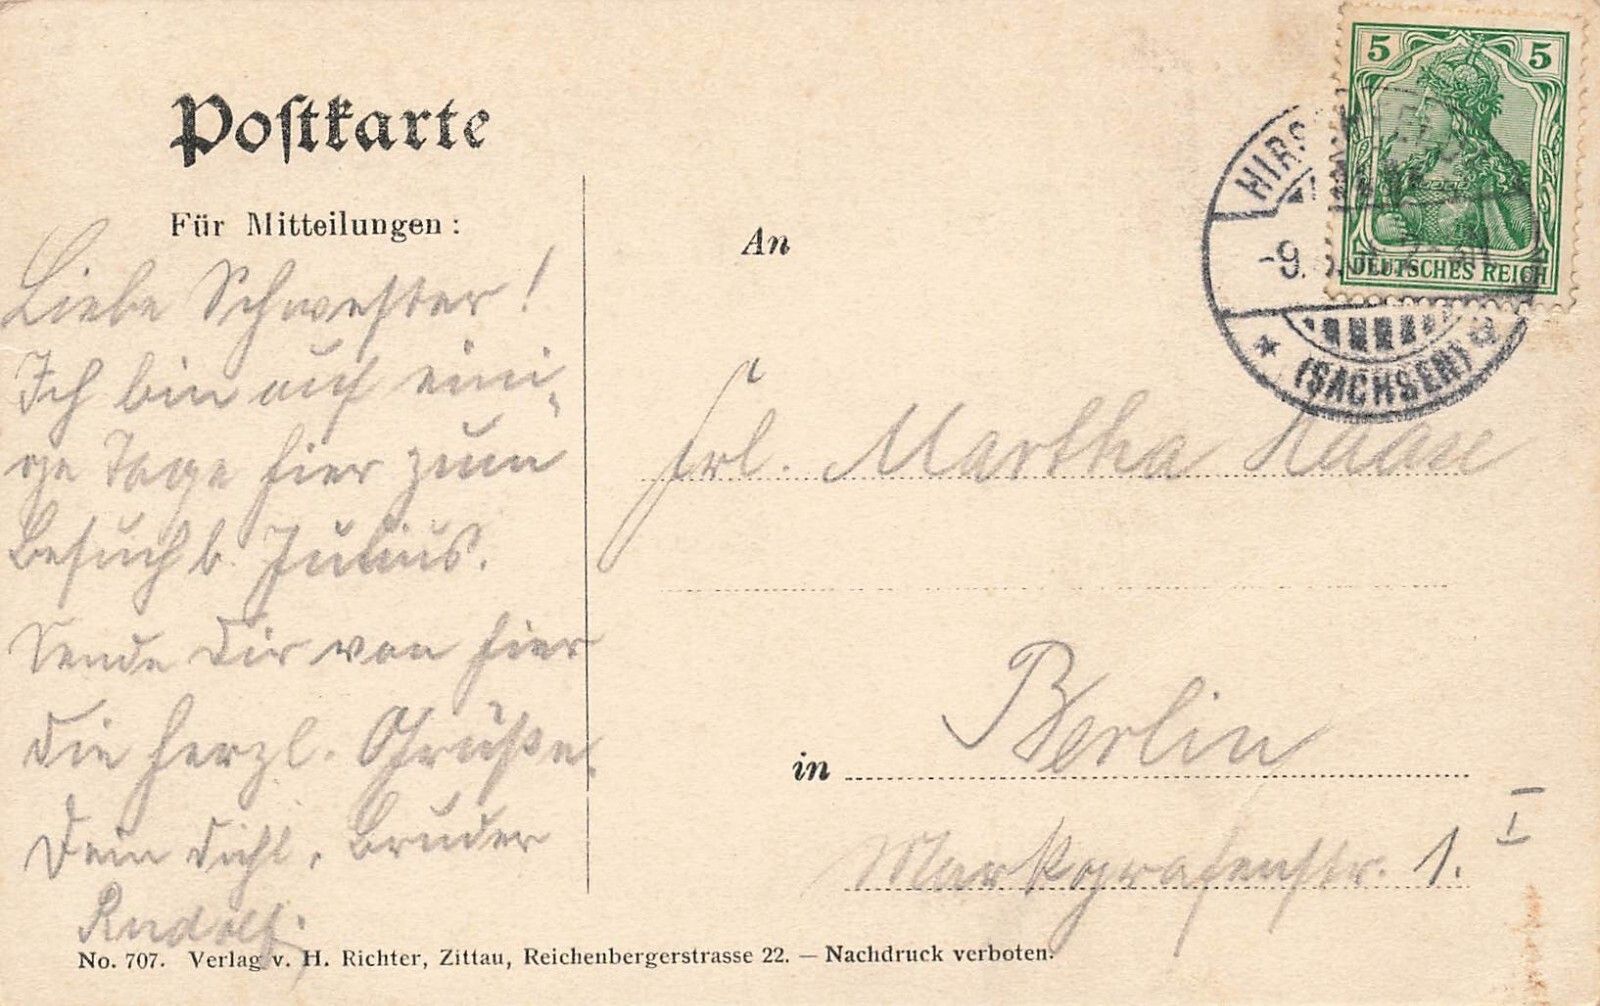 Postkarte
Für Mitteilungen:
Liebe Schwester!
Ich bin auf eini-
ge Tage hier zum
Besuch b. Julius.
Sende Dir von hier
die herzl. Grüße.
Dein Bruder
Rudolf.
An
Frl. Martha Haase
in Berlin
Markgrafenstr. 1. I
5 5
DEUTSCHES REICH
-9.
(SACHSEN) a
No. 707. Verlag v. H. Richter, Zittau, Reichenbergerstrasse 22. — Nachdruck verboten.